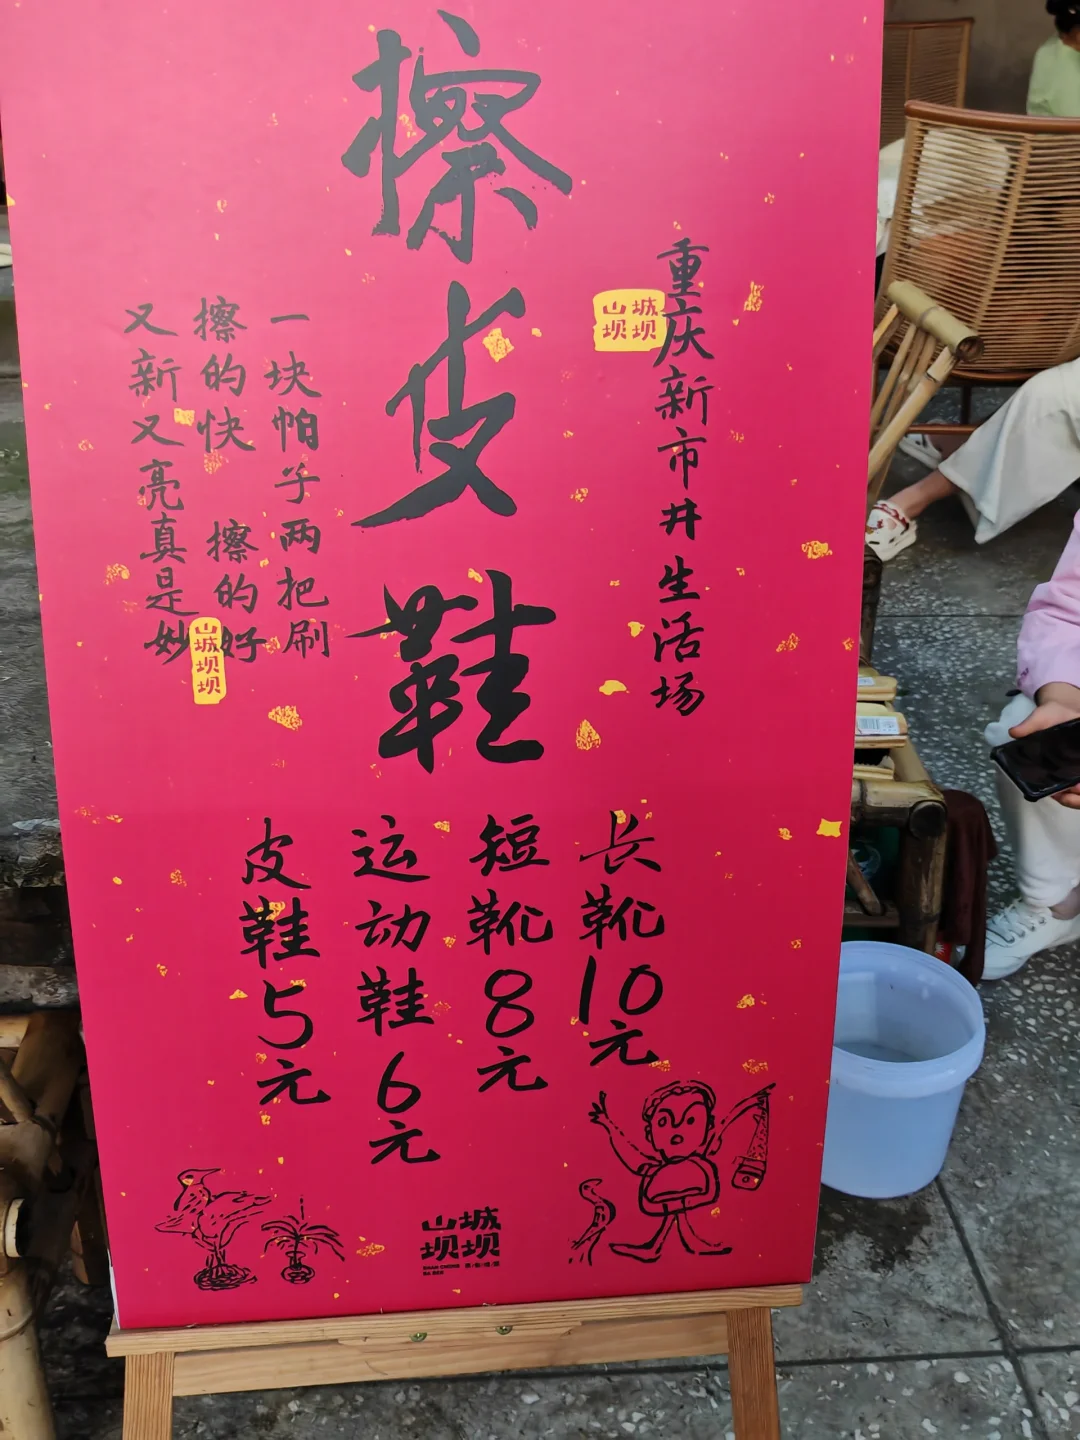 擦皮鞋
重庆新市井生活场
山城
坝坝
一块帕子两把刷
擦的快 擦的好
又新又亮真是妙
山城坝坝
长靴10元
短靴8元
运动鞋6元
皮鞋5元
山城
坝坝